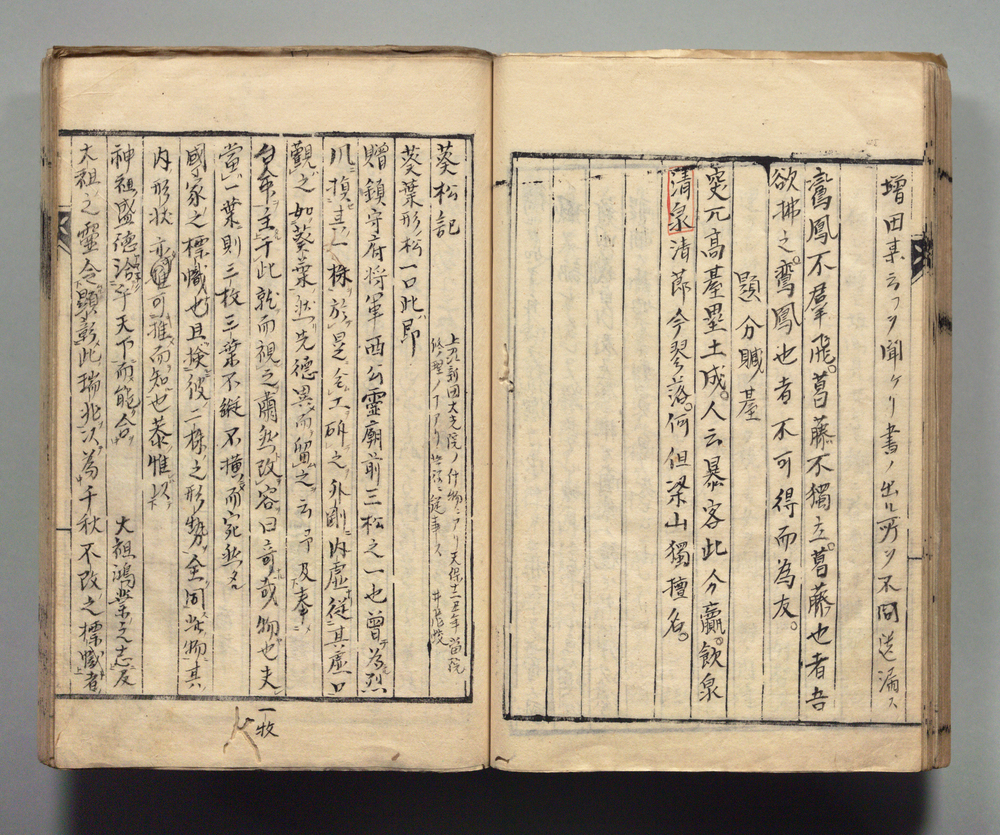 増田某云フヲ聞ケリ書ノ出ル所ヲ不問遺漏ス
鸞鳳不羣飛。葛藤不獨立。葛藤也者吾
欲拂之。鸞鳳也者不可得而為友。
題分贓ノ基
突兀高基塁土成。人云暴客此分贏。飲泉
清泉清節今零落。何但梁山獨擅名。
葵松記
上及新田大光院ノ什物ニアリ天保十二丑年當院
修理ノ アリ
葵葉形松一口此即
贈鎮守府将軍西公靈廟前三松之一也曾為烈
風損其一株於是令工斫之外剛内虚従其虚口
觀之如葵葉然先德異而留之云予及奉
台命主于此乾而視之肅然改容曰奇哉物也夫
當一葉則三枚三葉不縱不横而宛然
國家之標幟也且撿彼二株之形勢全同此物其
内形状亦可推而知也恭惟
大祖鴻業之志友
神祖盛德洽乎天下而能合
大祖之靈令顯彰此瑞兆以為千秋不改之標幟者
一枚